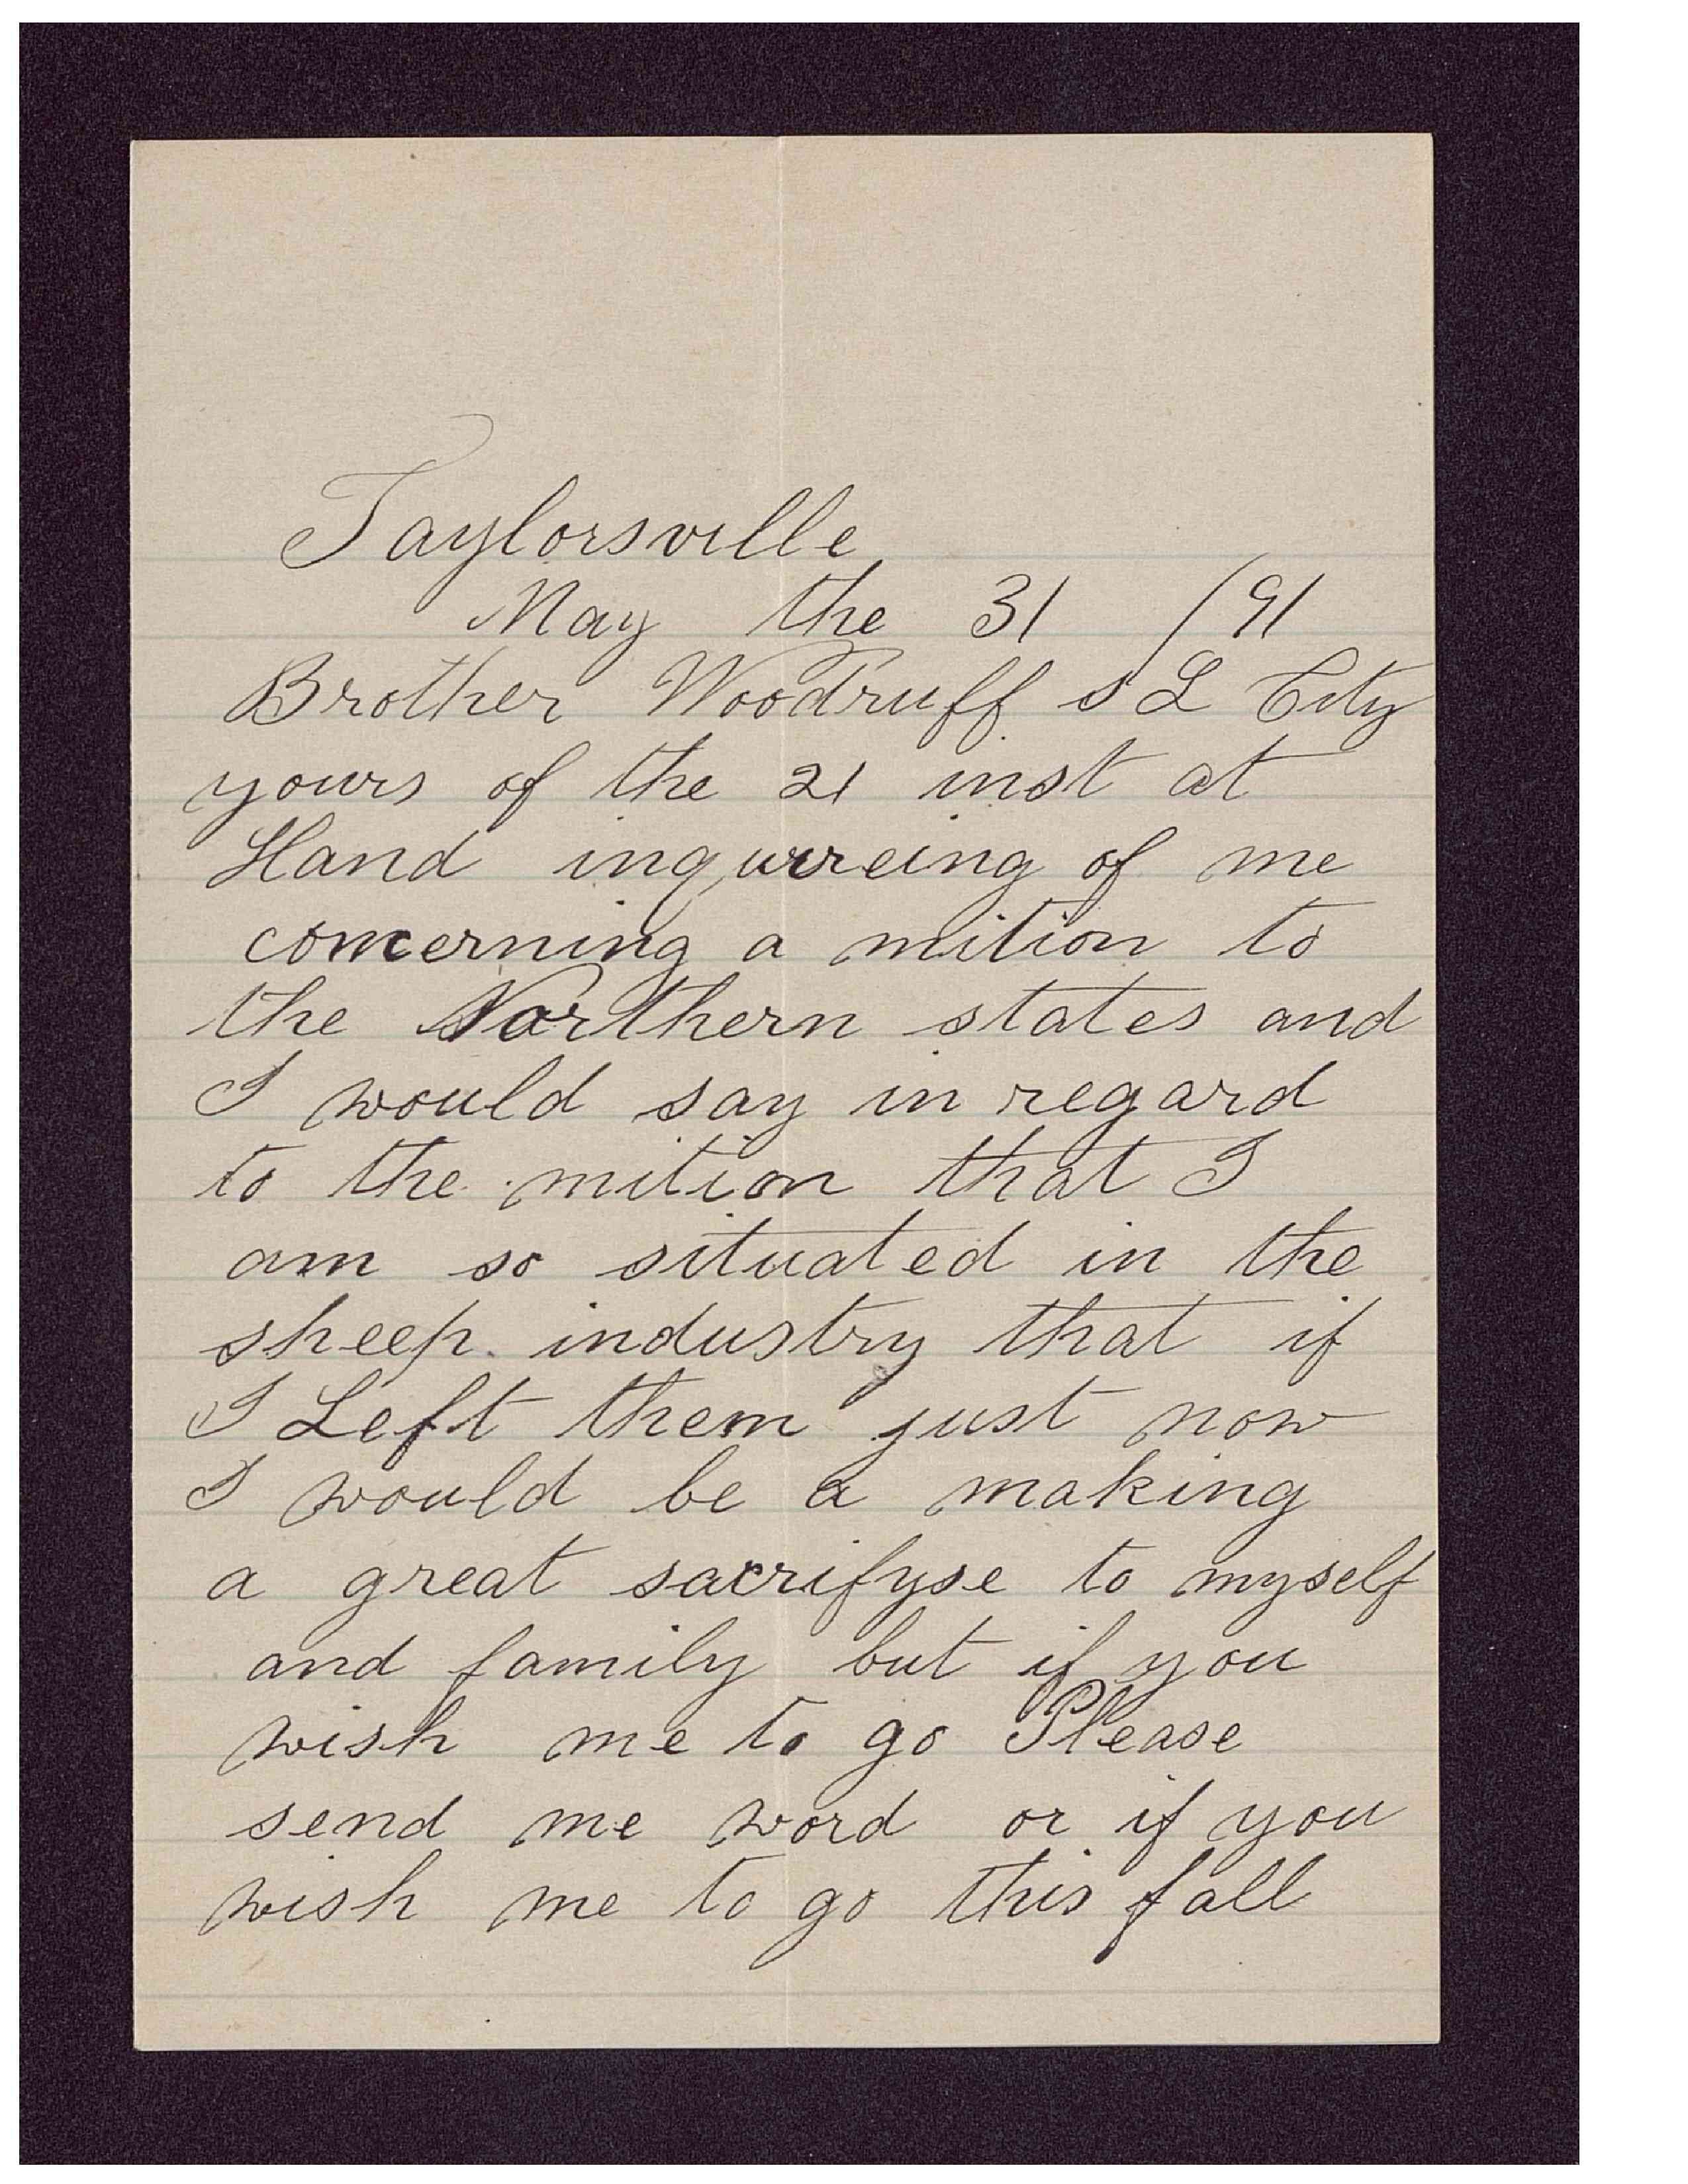 Taylorsville
May the 31 /91
Brother Woodruff S L City
yours of the 21 inst at
Hand inqurreing of me
concerning a mition to
the Northern states and
I would say in regard
to the mition that I
am so situated in the
sheep industry that if
I Left them just now
I would be a making
a great sacrifyse to myself
and family but if you
wish me to go Please
send me word or if you
wish me to go this fall